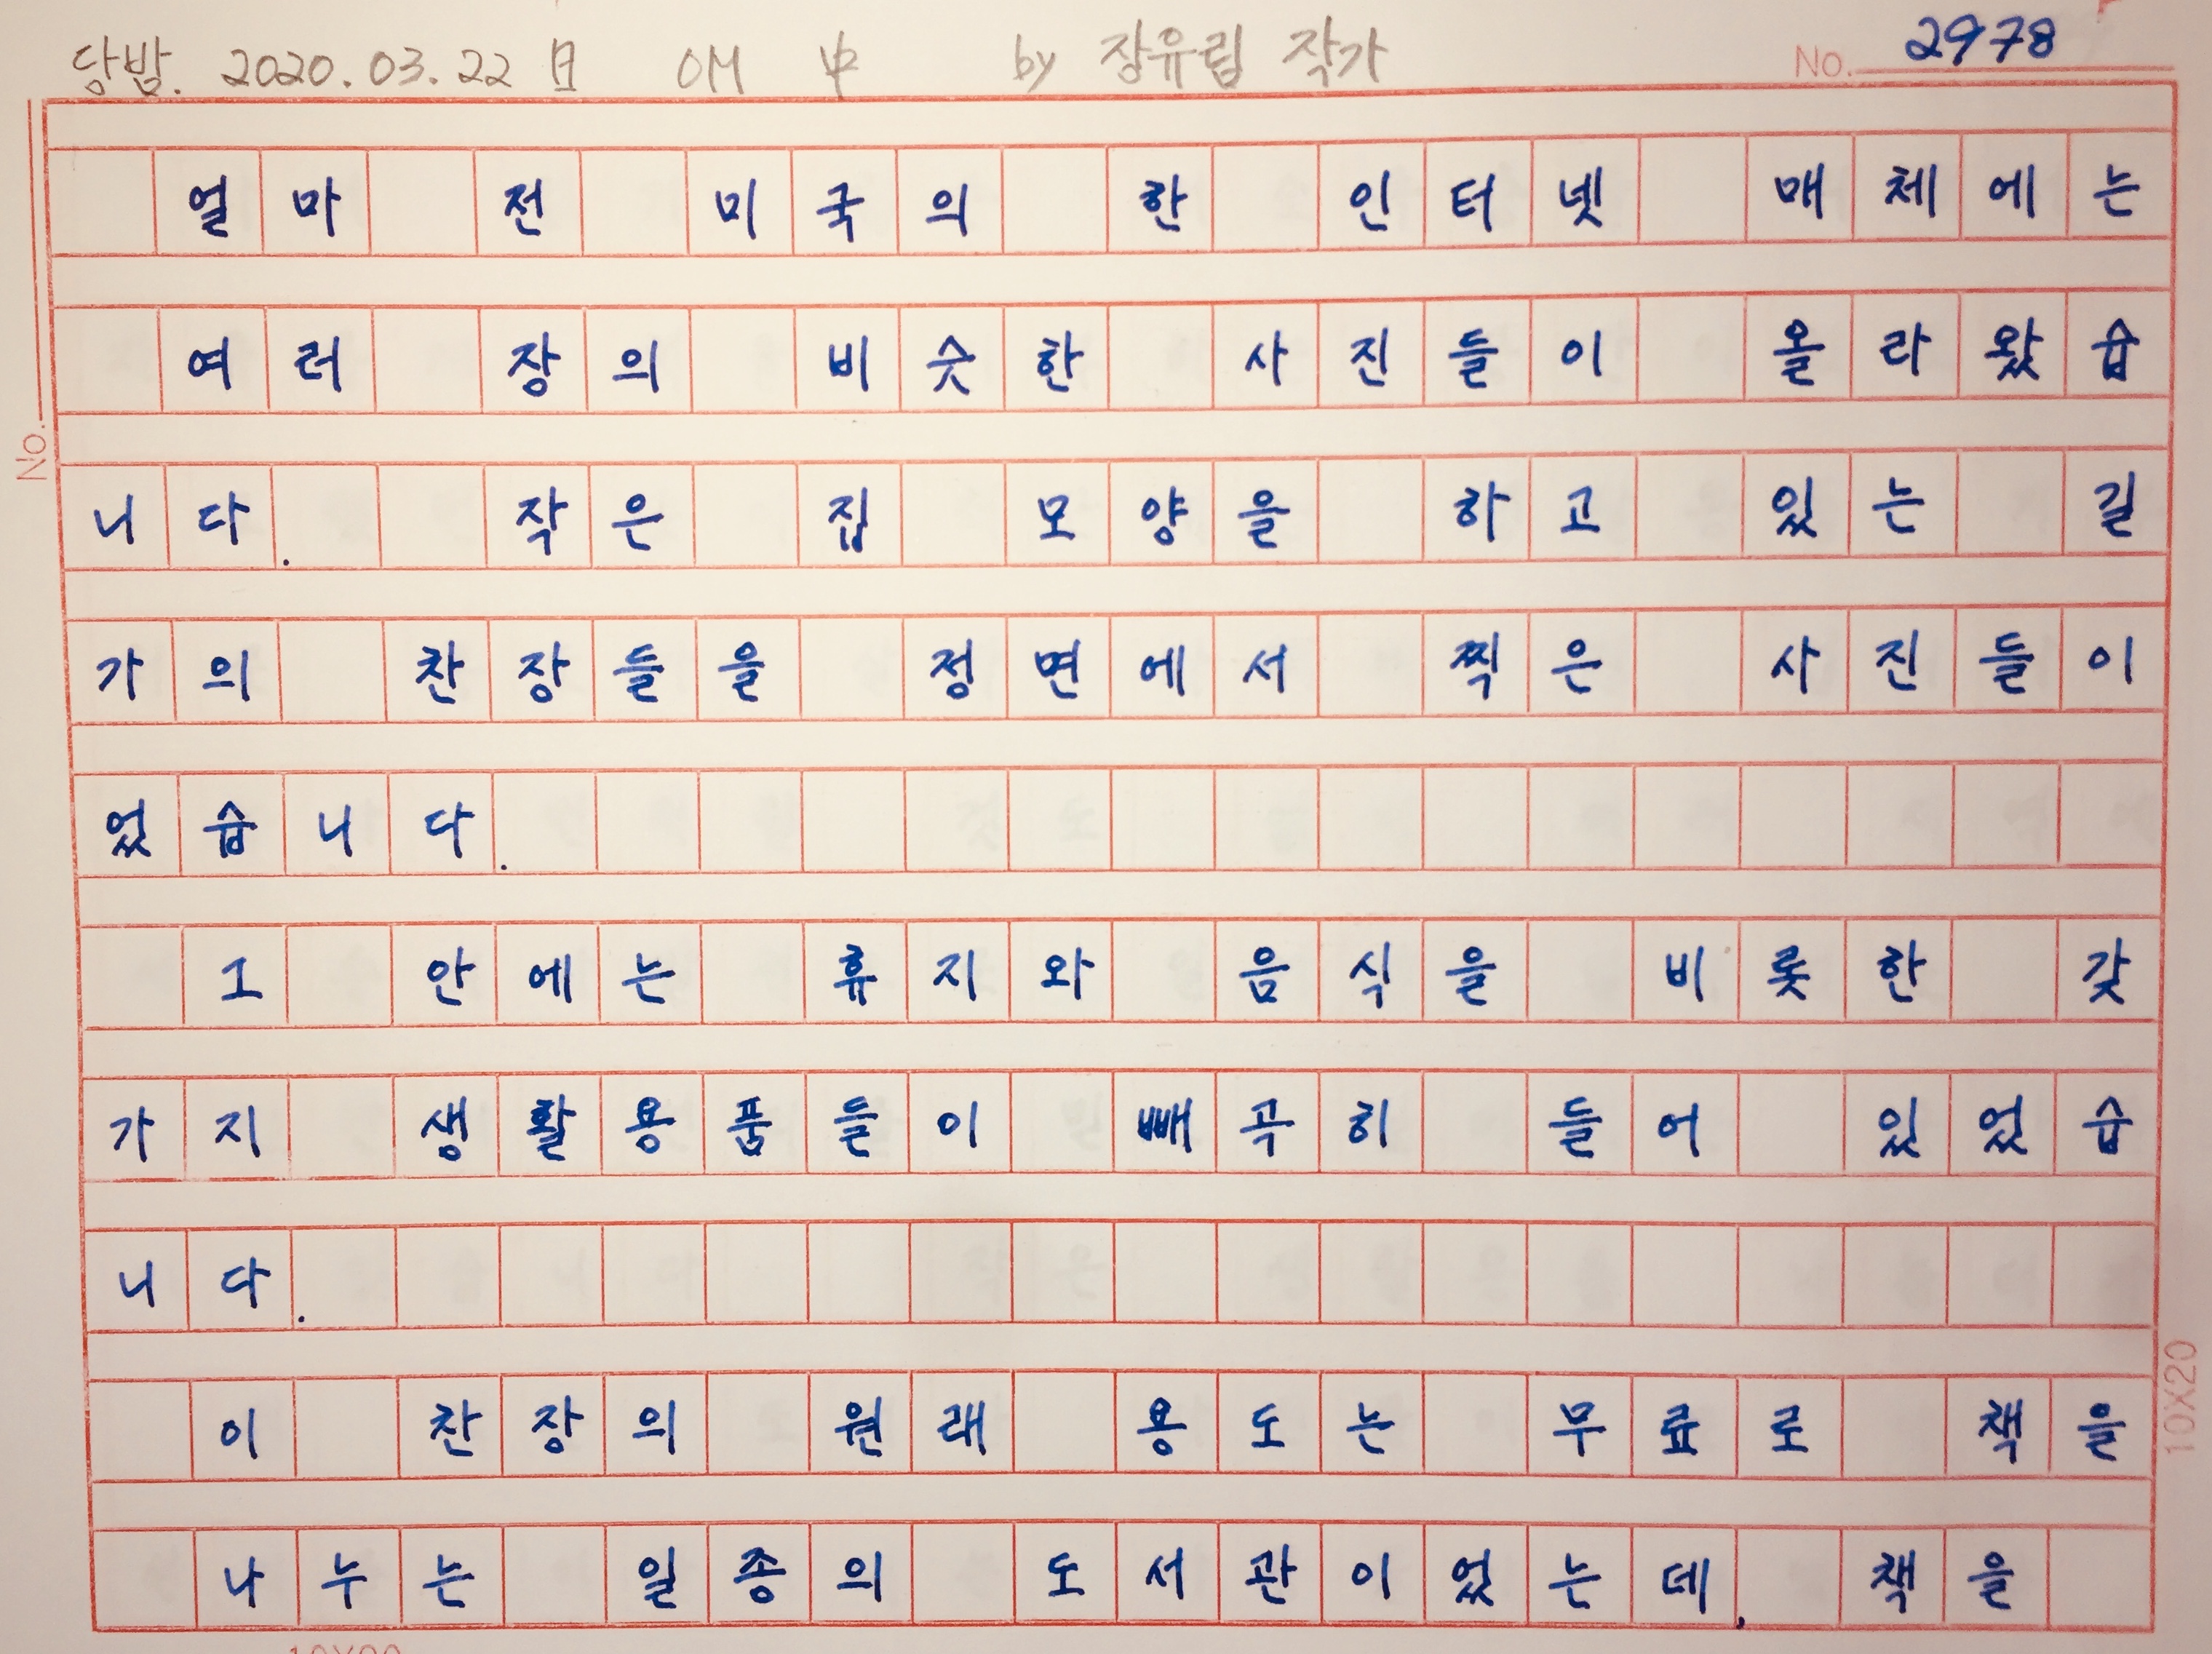 당밤. 2020.03.22 日 OM 中 by 장유림 작가
No. 2978
얼마 전 미국의 한 인터넷 매체에는
여러 장의 비슷한 사진들이 올라왔습
니다. 작은 집 모양을 하고 있는 길
가의 찬장들을 정면에서 찍은 사진들이
었습니다.
그 안에는 휴지와 음식을 비롯한 갖
가지 생활용품들이 빼곡히 들어 있었습
니다.
이 찬장의 원래 용도는 무료로 책을
나누는 일종의 도서관이었는데, 책을
No.
10X20
10X20